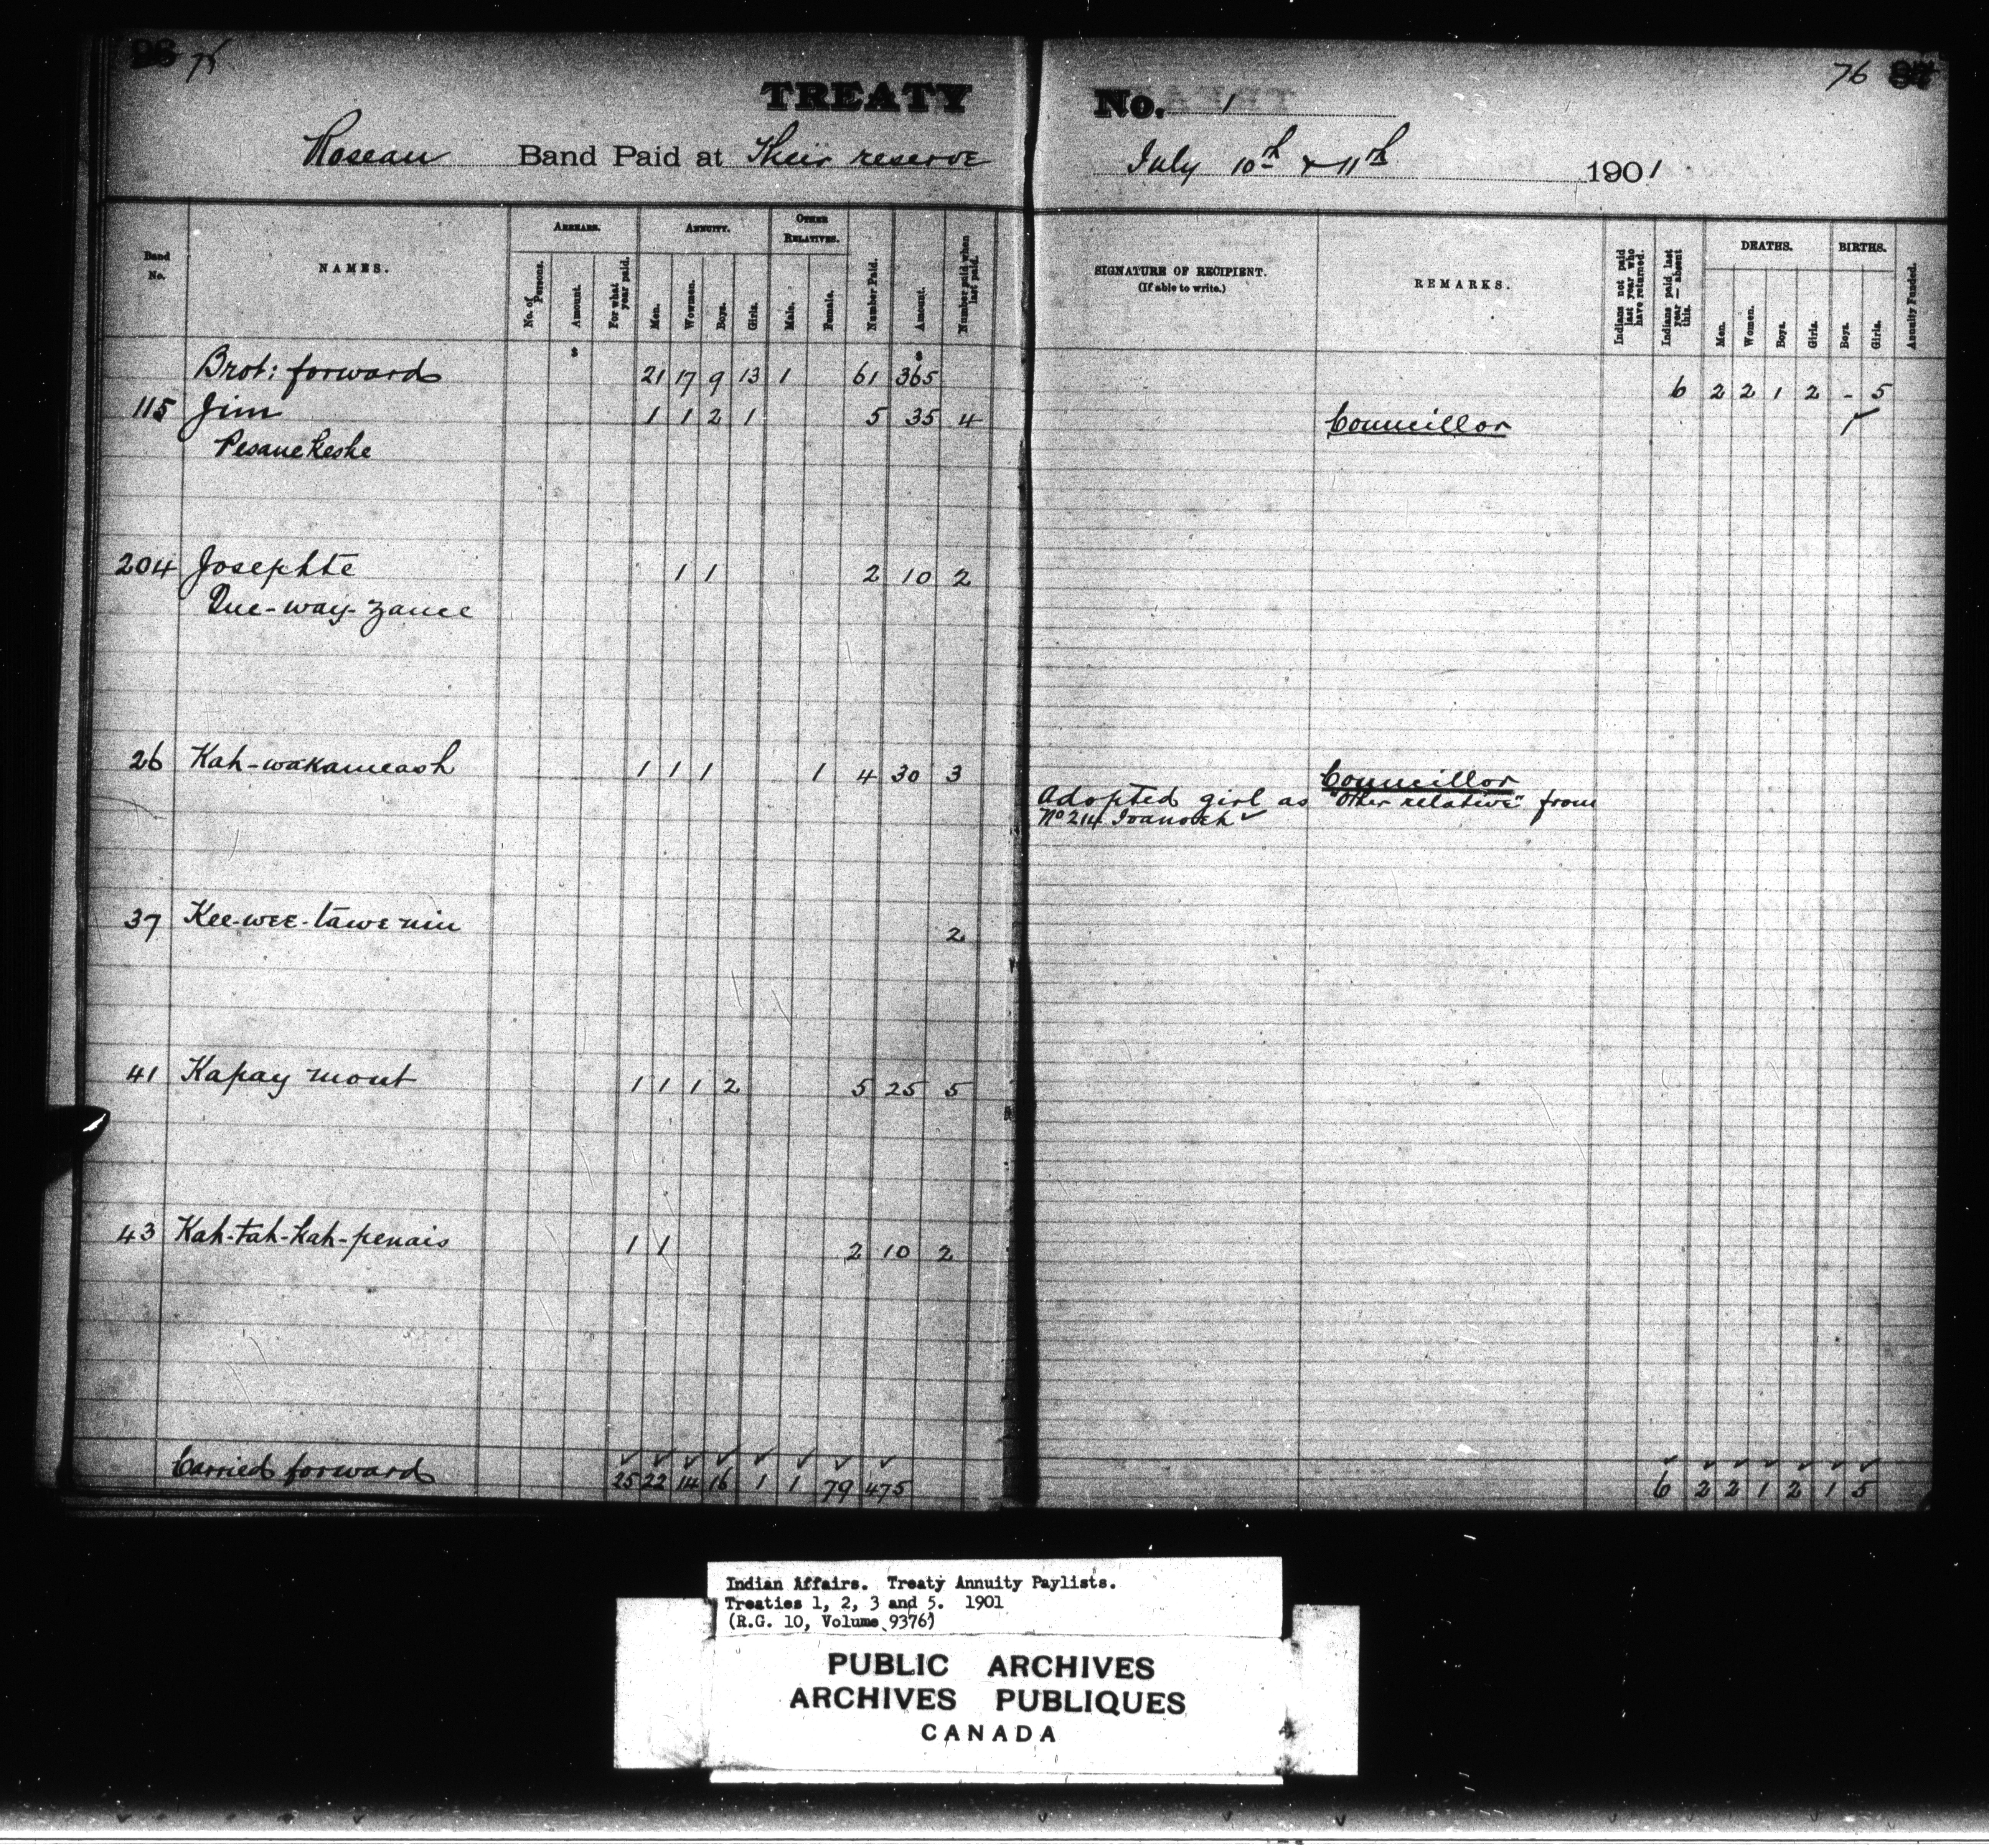 75
TREATY No. 1
76
Roseau Band Paid at Their reserve July 10th & 11th 1901
Band No.
NAMES.
ARREARS.
No. of Persons.
Amount.
For what year paid.
ANNUITY.
Men.
Women.
Boys.
Girls.
OTHER RELATIVES.
Male.
Female.
Number Paid.
Amount.
Number paid when last paid.
SIGNATURE OF RECIPIENT.
(If able to write.)
REMARKS.
Indians not paid last year who have returned.
Indians paid last year — absent this.
DEATHS.
Men.
Women.
Boys.
Girls.
BIRTHS.
Boys.
Girls.
Annuity Funded.
$ $
Brot: forward 21 17 9 13 1 61 365 6 2 2 1 2 - 5
115 Jim 1 1 2 1 5 35 4 Councillor 1
Pesanekeshe
204 Josephte 1 1 2 10 2
Que-way-zance
26 Kah-wakameash 1 1 1 1 4 30 3 Councillor
Adopted girl as "Other relative" from
No 214
37 Kee-wee-tawe nin 2
41 Kapay mont 1 1 1 2 5 25 5
43 Kah-tah-kah-penais 1 1 2 10 2
Carried forward 25 22 14 16 1 1 79 475 6 2 2 1 2 1 5
Indian Affairs. Treaty Annuity Paylists.
Treaties 1, 2, 3 and 5. 1901
(R.G. 10, Volume 9376)
PUBLIC ARCHIVES
ARCHIVES PUBLIQUES
CANADA